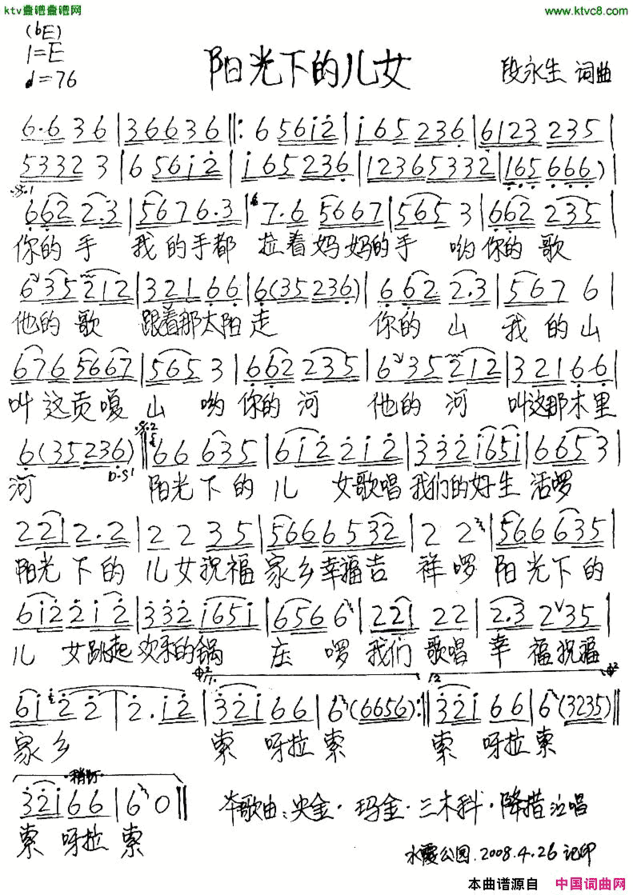 ktv查谱查谱网 www.ktvc8.com
(bE)
1=E
♩=76
阳光下的儿女
段永生 词曲
6·6 3 6 | 3 6 6 3 6 |: 6 5 6 i 2 | i 6 5 2 3 6 | 6 1 2 3 2 3 5 |
5 3 3 2 3 | 6 5 6 i 2 | i 6 5 2 3 6 | 1 2 3 6 5 3 3 2 | 1 6 5 6 6 6 )
6 6 2 2·3 | 5 6 7 6·3 | 7·6 5 6 6 7 | 5 6 5 3 | 6 6 2 2 3 5 |
你的 手 我 的手都 拉着妈妈的手 哟 你的 歌
6 3 5 2 1 2 | 3 2 1 6 6 | 6 (3 5 2 3 6) | 6 6 2 2·3 | 5 6 7 6 |
他的 歌 跟着那太阳走 你的 山 我 的 山
6 7 6 5 6 6 7 | 5 6 5 3 | 6 6 2 2 3 5 | 6 3 5 2 1 2 | 3 2 1 6 6 |
叫这贡嘎 山 哟 你的 河 他的 河 叫这那木里
6 (3 5 2 3 6) 6 6 6 3 5 | 6 i 2 2 i 2 | 3 3 2 i 6 5 i | 6 6 5 3 |
D.S1
河 阳光下的 儿 女歌唱 我们的好生 活啰
2 2 i 2·2 | 2 2 3 5 | 5 6 6 6 6 5 3 2 | 2 2 | 5 6 6 6 3 5 |
阳光 下 的 儿女祝福 家乡幸福吉 祥 啰 阳光下的
6 i 2 2 i 2 | 3 3 2 i 6 5 i | 6 5 6 6 | 2 2 i 2 2 | 2·3 2 3 5 |
儿 女跳起 欢乐的锅 庄 啰 我们 歌唱 幸 福祝福
6 i 2 2 | 2·i 2 | 3 2 i 6 6 | 6 (6 6 5 6) :| 3 2 i 6 6 | 6 (3 2 3 5) ‖
家 乡 索 呀拉 索 索 呀拉 索
稍慢
3 2 i 6 6 | 6 0 ‖ 本歌由:央金·玛金·三木科·降措泣唱
索 呀拉 索
水霞公园.2008.4.26 记印
本曲谱源自 中国词曲网